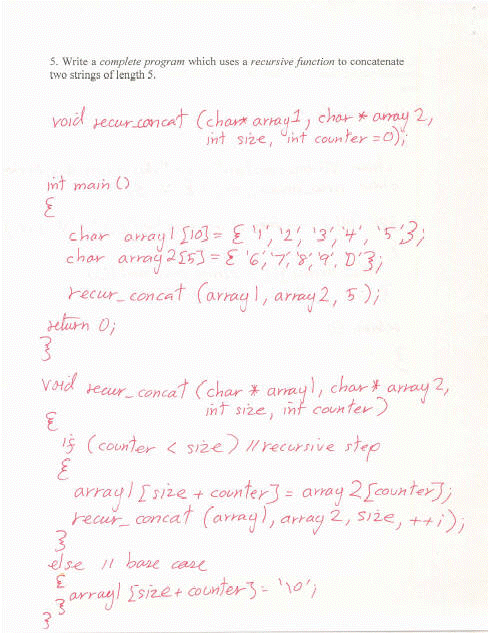 5. Write a complete program which uses a recursive function to concatenate
two strings of length 5.
void recur_concat (char* array1, char * array 2,
int size, int counter = 0);
int main ()
{
char array1 [10] = { '1', '2', '3', '4', '5' };
char array2 [5] = { '6', '7', '8', '9', '0' };
recur_concat (array1, array2, 5);
return 0;
}
void recur_concat (char * array1, char * array 2,
int size, int counter)
{
if (counter < size) // recursive step
{
array1 [size + counter] = array 2 [counter];
recur_concat (array1, array 2, size, ++i);
}
else // base case
{
array1 [size + counter] = '\0';
}
}